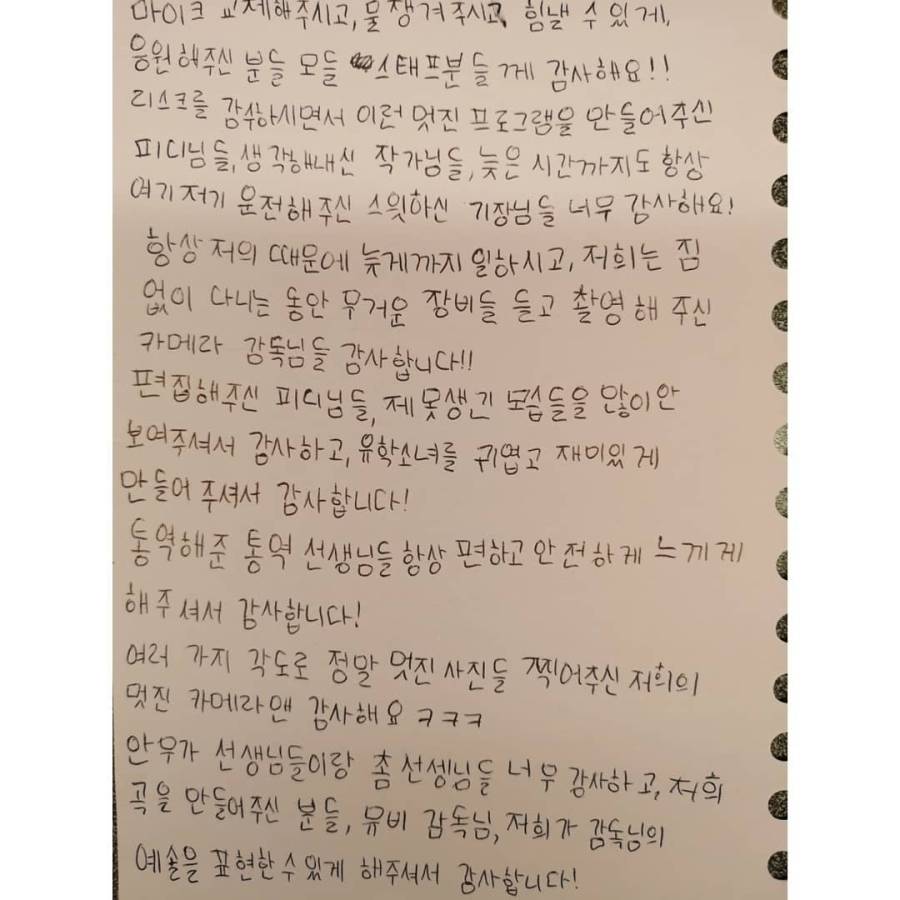 마이크 교체해주시고, 물 챙겨주시고, 힘낼 수 있게,
응원해주신 분들 모들 스태프분들께 감사해요!!
리스크를 감수하시면서 이런 멋진 프로그램을 만들어주신
피디님들, 생각해내신 작가님들, 늦은 시간까지도 항상
여기저기 운전해주신 스윗하신 기장님들 너무 감사해요!
항상 저의 때문에 늦게까지 일하시고, 저희는 짐
없이 다니는 동안 무거운 장비들 들고 촬영해 주신
카메라 감독님들 감사합니다!!
편집해주신 피디님들, 제 못생긴 모습들을 많이 안
보여주셔서 감사하고, 유학소녀를 귀엽고 재미있게
만들어 주셔서 감사합니다!
통역해준 통역 선생님들 항상 편하고 안전하게 느끼게
해주셔서 감사합니다!
여러 가지 각도로 정말 멋진 사진들 찍어주신 저희의
멋진 카메라맨 감사해요 ㅋㅋㅋ
안무가 선생님들이랑 춤 선셍님들 너무 감사하고, 저희
곡을 만들어주신 분들, 뮤비 감독님, 저희가 감독님의
예술을 표현한 수 있게 해주셔서 감사합니다!